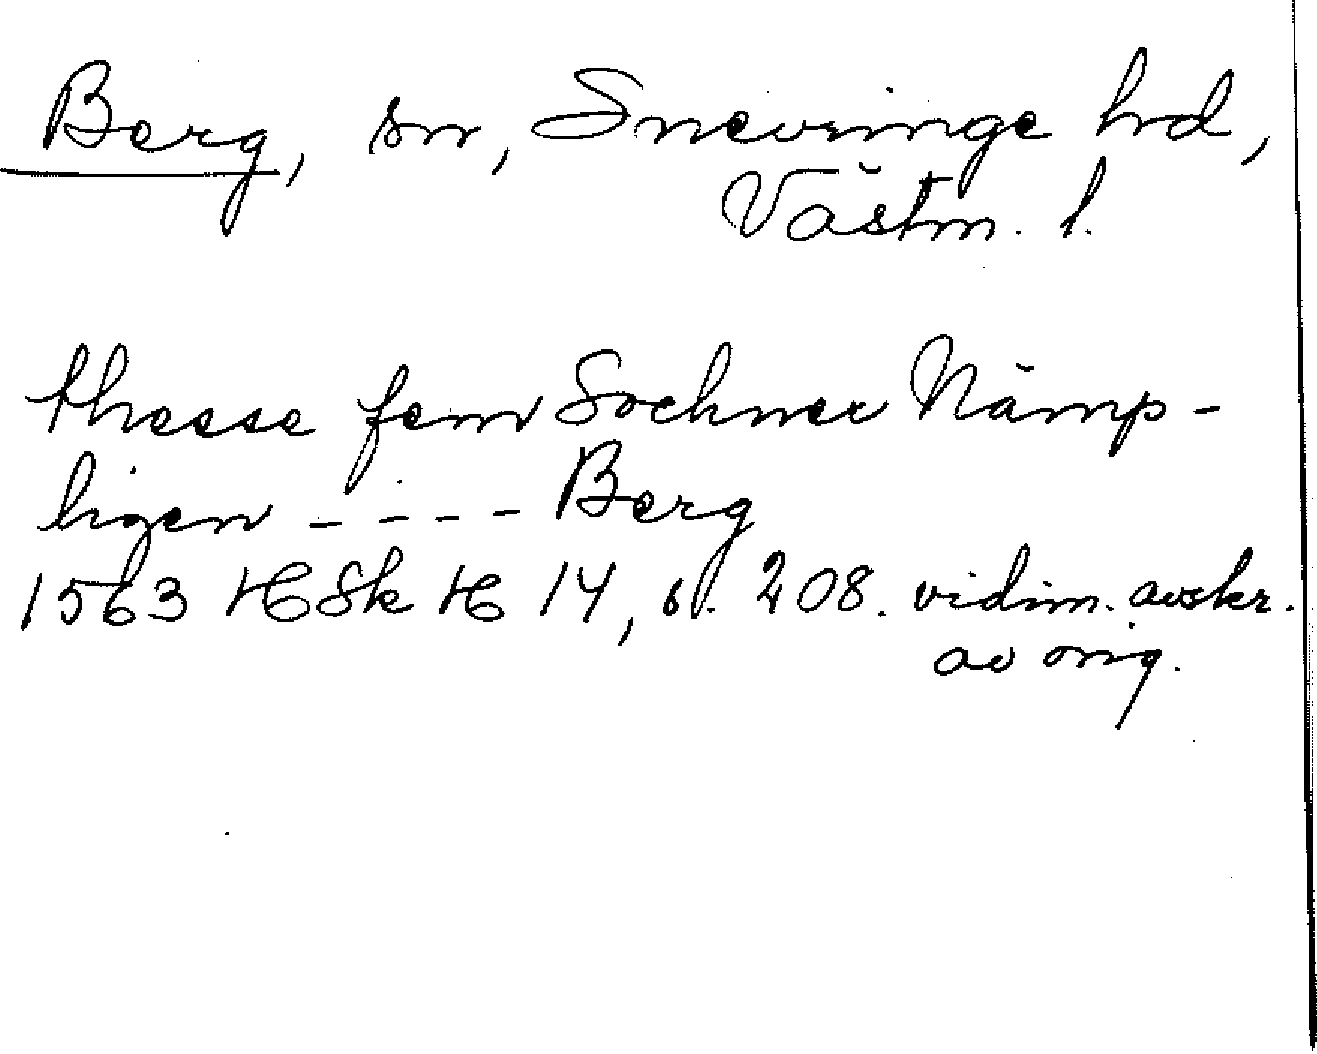 Berg, sn, Snevringe hrd,
Västm. l.
thesse fem Sochner Nämp-
ligen - - - - Berg
1563 HSk H 14, s. 208. vidim. avskr.
av orig.